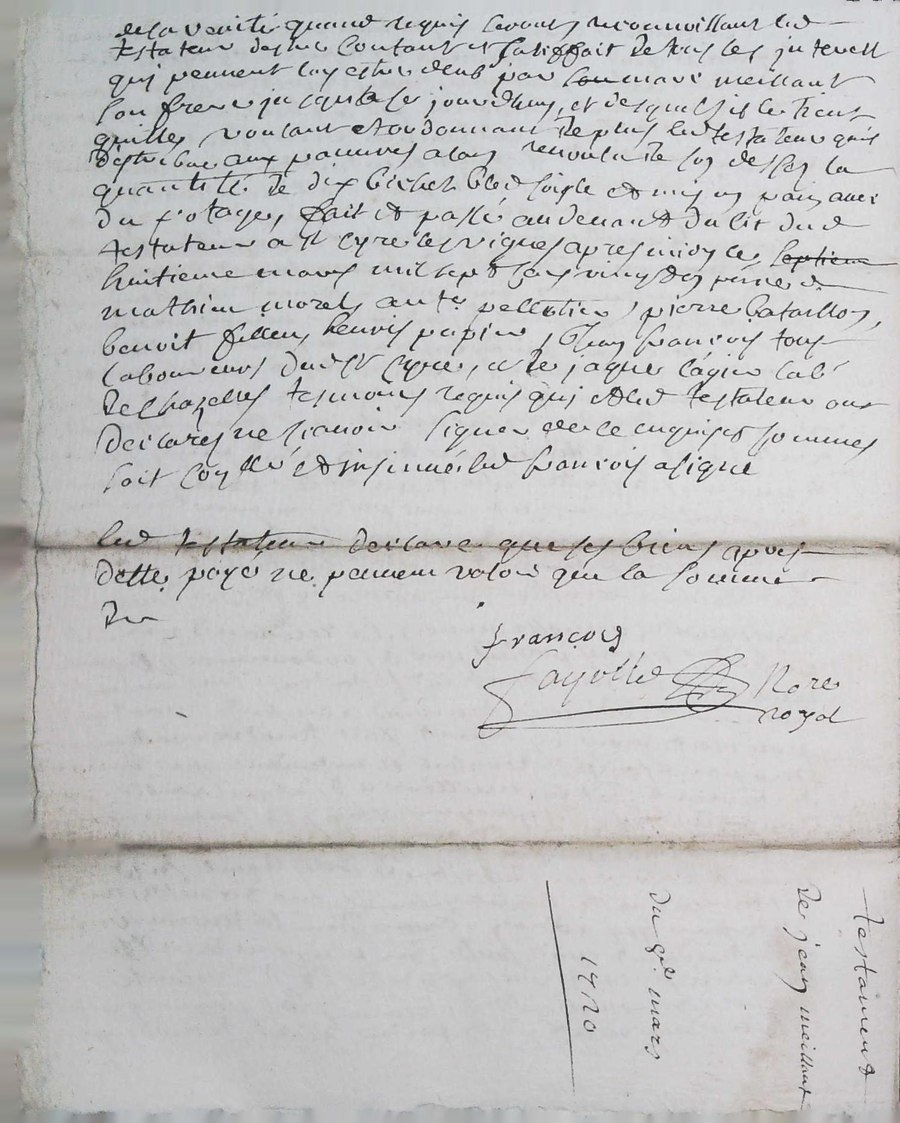 de la verité quand requis seront reconnoissant led
testateur destre contant et satisffait de tous les
qui peuvent luy estre deub par meillant
son frere jusques a ce jourdhuy, et desquels il le tient
quitte, voulant et ordonnant de plus led testateur quil
distribue aux pauvres a la de son desses la
quantité de dix bichet bled soigle et mis en pain avec
du potage, fait et passé au devant du lit dud
testateur a st cyre les vignes apres midy le septieme
huitieme mars mil sept cens vingt
mathieu morel, ante pelletier, pierre bataillon,
benoit fillon, henris papin, françois tous
laboureurs dud st cyre, et de jaque lagier lab
de chazelles tesmoins requis qui et led testateur ont
declarez ne sçavoir signer de ce enquis et sommes
soit et insinué led françois a signe
led testateur declare que ses biens apres
dette payé ne peuvent valoir que la somme
de
françois
fayolle Nore
royal
testament
de jean meillant
du 8e mars
1720